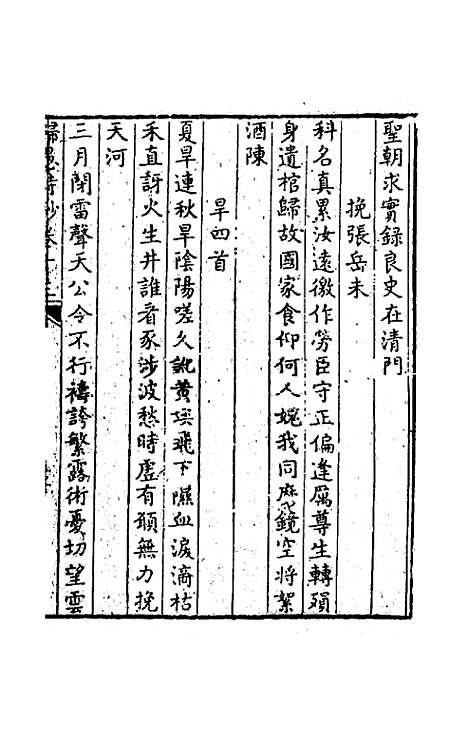 聖朝求實錄良史在清門
挽張岳未
科名真累汝遠徼作勞臣守正偏逢厲尊生轉殞
身遺棺歸故國家食仰何人媿我同麻鏡空將絮
酒陳
旱四首
夏旱連秋旱陰陽嗟久訛黃埃飛下隰血淚滴枯
禾直訝火生井誰看豕涉波愁時虛有願無力挽
天河
三月閉雷聲天公令不行禱誇繁露術憂切望雲
詩鈔卷十